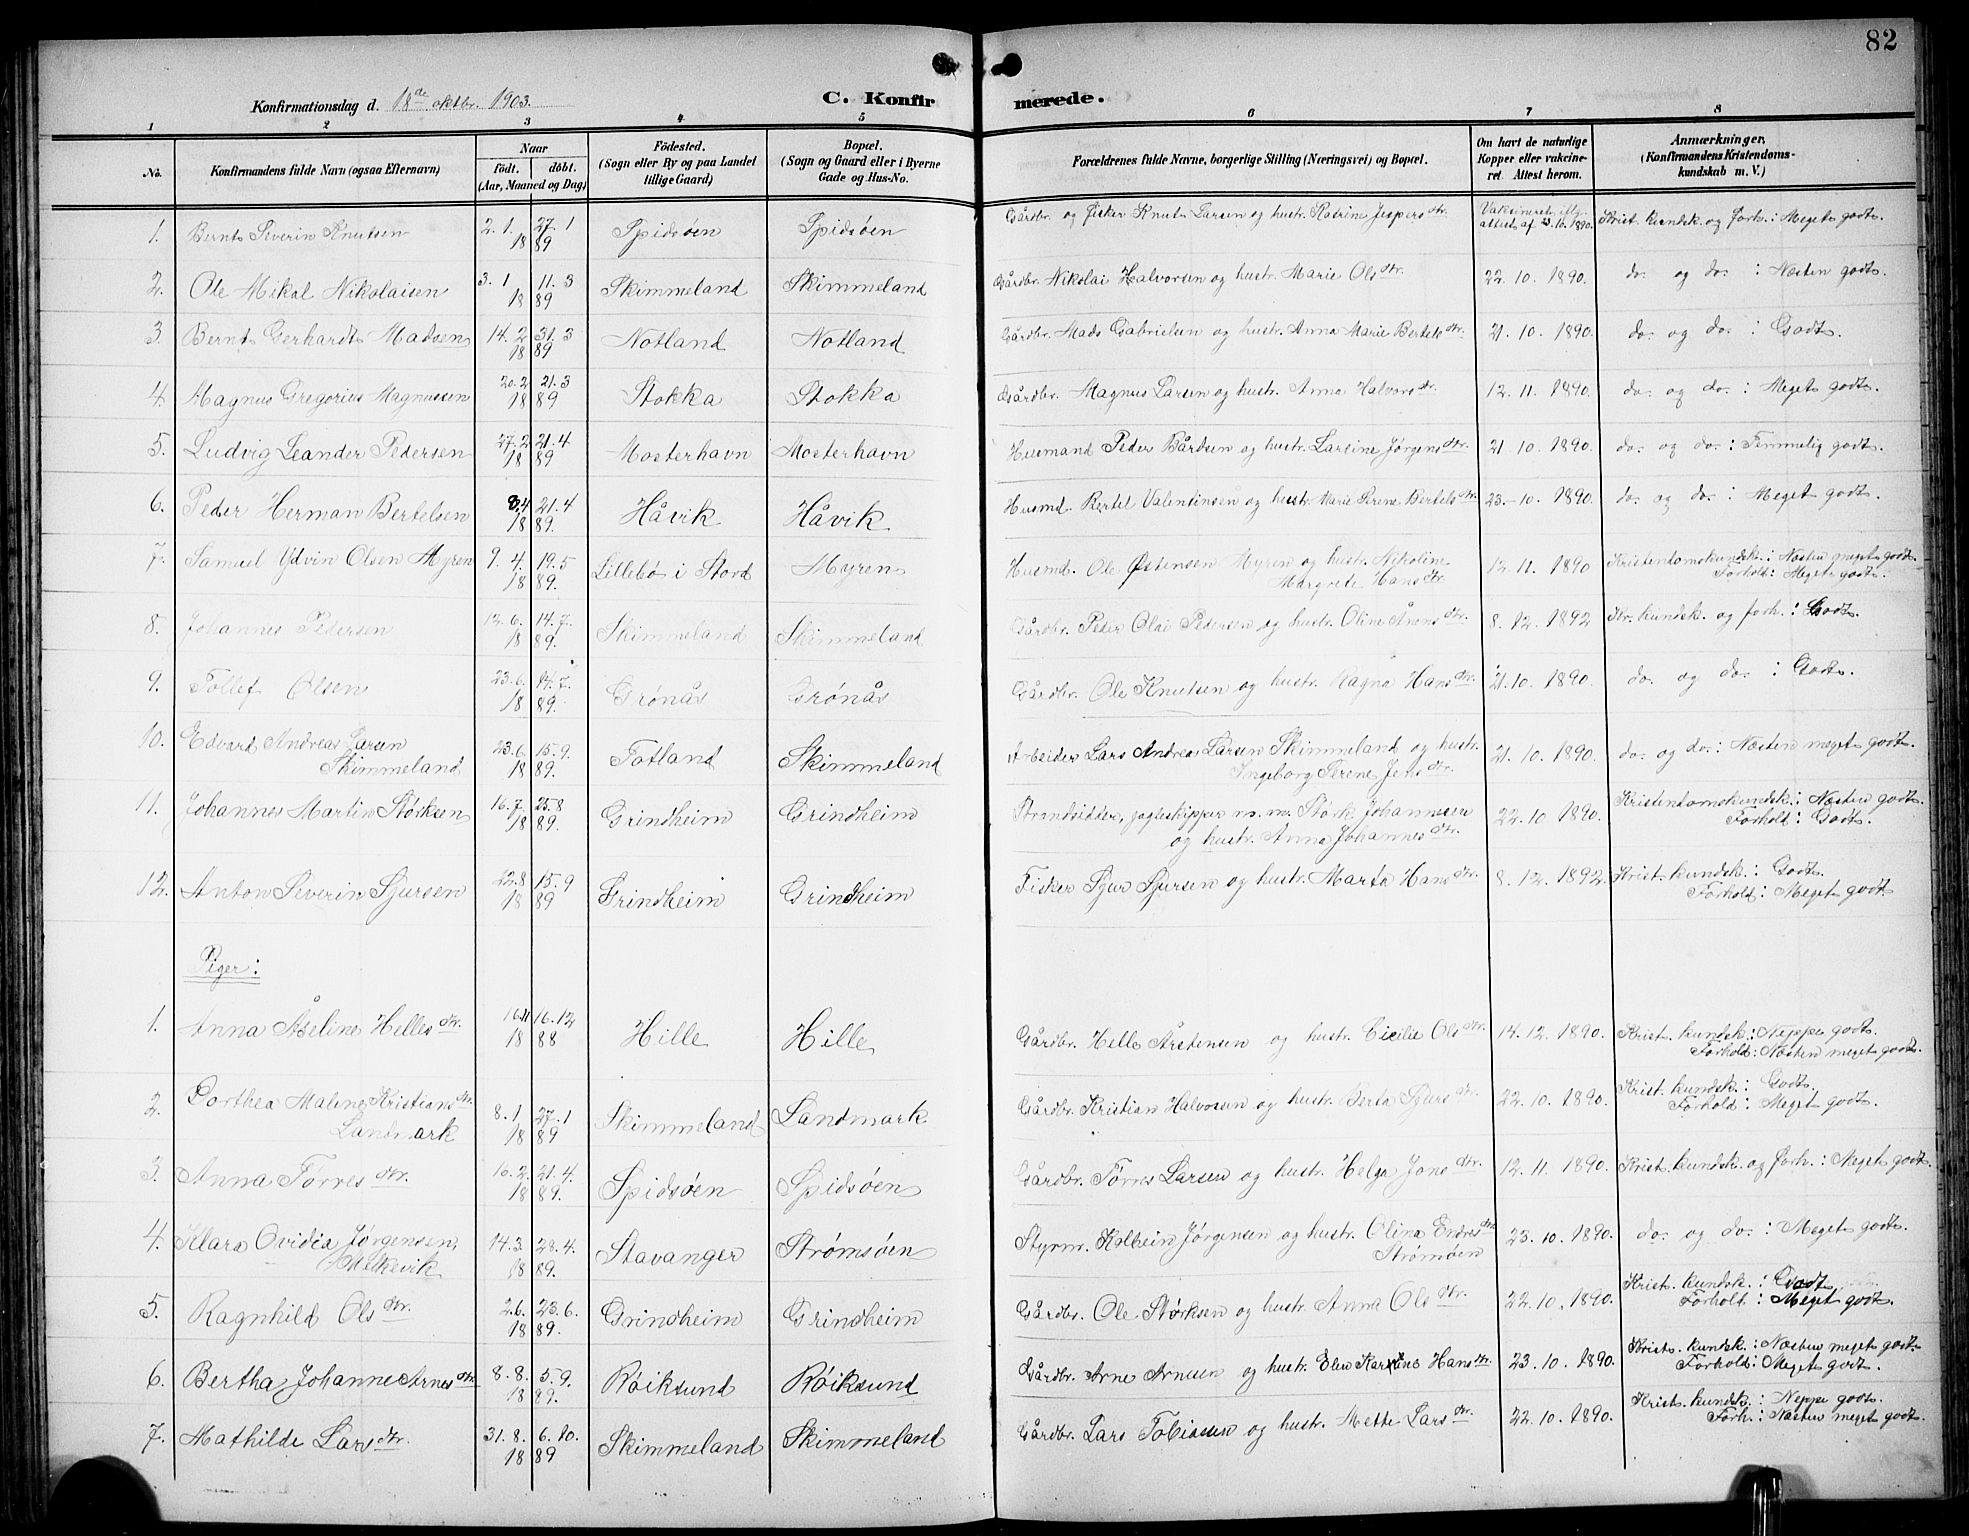 82
Konfirmationsdag d. 18de oktbr. 1903.
C. Konfirmerede.
1 2 3 4 5 6 7 8
No.
Konfirmandens fulde Navn (ogsaa Efternavn)
Naar
født. døbt.
(Aar, Maaned og Dag)
Fødested.
(Sogn eller By og paa Landet
tillige Gaard)
Bopæl.
(Sogn og Gaard eller i Byerne
Gade og Hus-No.
Forældrenes fulde Navne, borgerlige Stilling (Næringsvei) og Bopæl.
Om havt de naturlige
Kopper eller vakcine-
ret Attest herom.
Anmærkninger.
(Konfirmandens Kristendoms-
kundskab m. V.)
1. Bernt Severin Knutsen 2. 1. 27. 1 1889 Spidsøen Spidsøen Gårdbr. og Fisker Knut Larsen og hustr. Katrine Jespersdtr. Vaksineret iflg. attest af 23.10.1890. Krist. kundsk. og forh.: Meget godt.
2. Ole Mikal Nikolaisen 3. 1 11. 3 1889 Skimmeland Skimmeland Gårdbr. Nikolai Halvorsen og hustr. Marie Olsdtr. 22. 10. 1890. do. og do. : Næsten godt.
3. Bernt Gerhardt Madsen 14. 2 31. 3 1889 Notland Notland Gårdbr. Mads Gabrielsen og hustr. Anna Marie Bertelsdtr. 21. 10. 1890. do. og do. : Godt.
4. Magnus Gregorius Magnussen 20. 2 21. 3 1889 Stokka Stokka Gårdbr. Magnus Larsen og hustr. Anna Halvorsdtr. 12. 11. 1890. do. og do. : Meget godt.
5. Ludvig Leander Pedersen 27. 2 21. 4 1889 Mosterhavn Mosterhavn Husmand Peder Bårdsen og hustr. Larsine Jørgensdtr. 21. 10. 1890. do. og do. : Temmelig godt.
6. Peder Herman Bertelsen 4 21. 4 1889. Håvik Håvik Husmd. Bertel Valentinsen og hustr. Marie Serene Bertelsdtr. 23. 10. 1890. do. og do. : Meget godt.
7. Samuel Ydvin Olsen Myren 9. 4. 19. 5 1889. Lillebø i Stord Myren Husmd. Ole Østensen Myren og hustr. Nikoline
Margrete Hansdtr. 12. 11. 1890 Kristendomskundsk.: Næsten meget godt.
Forhold: Meget godt.
8. Johannes Pedersen 12. 6. 14. 7. 1889. Skimmeland Skimmeland Gårdbr. Peder Olai Pedersen og hustr. Oline Ånensdtr. 8. 12. 1892 Kr. kundsk. og forh. : Godt.
9. Tollef Olsen 23. 6. 14. 7. 1889. Grønås Grønås Gårdbr. Ole Knutsen og hustr. Ragna Hansdtr. 21. 10. 1890. do. og do. : Godt.
10. Edvard Andreas Larsen
Skimmeland 23. 6. 15. 9. 1889. Totland Skimmeland Arbeider Lars Andreas Larsen Skimmeland og hustr.
Ingeborg Serene Jensdtr. 21. 10. 1890. do. og do. : Næsten meget godt.
11. Johannes Martin Størksen 16. 7. 25. 8 1889. Grindheim Grindheim Strandsidder, jagteskipper m. m. Størk Johannesen
og hustr. Anna Johannesdtr. 22. 10. 1890. Kristendomskundsk.: Næsten godt.
Forhold: Godt.
12. Anton Severin Sjursen 22. 8 15. 9 1889 Grindheim Grindheim Fisker Sjur Sjursen og hustr. Marta Hansdtr. 8. 12. 1892. Krist. kundsk. : Godt.
Forhold: Meget godt.
Piger:
1. Anna Åseline Hellesdtr. 16.11 16. 12 1888 Hille Hille Gårdbr. Helle Årstensen og hustr. Cicilie Olsdtr. 14. 12. 1890. Krist. kundsk.: Neppe godt.
Forhold: Næsten meget godt.
2. Dorthea Maline Kristiansdtr.
Landmark 8. 1 27. 1 1889 Skimmeland Landmark Gårdbr. Kristian Halvorsen og hustr. Berta Sjursdtr. 22. 10. 1890. Krist. kundsk. : Godt.
Forhold: Meget godt.
3. Anna Tørresdtr. 16. 2. 21. 4. 1889. Spidsøen Spidsøen Gårdbr. Tørres Larsen og hustr. Helga Jonsdtr. 12. 11. 1890. Krist. kundsk. og forh. : Meget godt.
4. Klara Ovidia Jørgensen,
Melkevik 14. 3. 28. 4. 1889. Stavanger Strømsøen Styrm. Kolbein Jørgensen og hustr. Olina Endresdtr.
Strømøen 23. 10. 1890. do. og do. : Meget godt.
5. Ragnhild Olsdtr. 2. 6. 23. 6. 1889. Grindheim Grindheim Gårdbr. Ole Størksen og hustr. Anna Olsdtr. 22. 10. 1890. Krist. kundsk. : Godt
Forhold : Meget godt.
6. Bertha Johanne Arnesdtr. 8. 8. 5. 9. 1889. Røiksund Røiksund Gårdbr. Arne Arnesen og hustr. Elen Karine Hansdtr. 23. 10. 1890. Krist. kundsk.: Næsten meget godt.
Forhold: Meget godt.
7. Mathilde Larsdtr. 31. 8. 6. 10. 1889 Skimmeland Skimmeland Gårdbr. Lars Tobiasen og hustr. Mette Larsdtr. 22. 10. 1890. Krist. kundsk.: Neppe godt.
Forh.: Næsten meget godt.